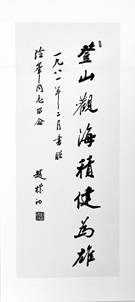 登山觀海積健為雄
一九八一年二月書贈
同志留念
趙樸初